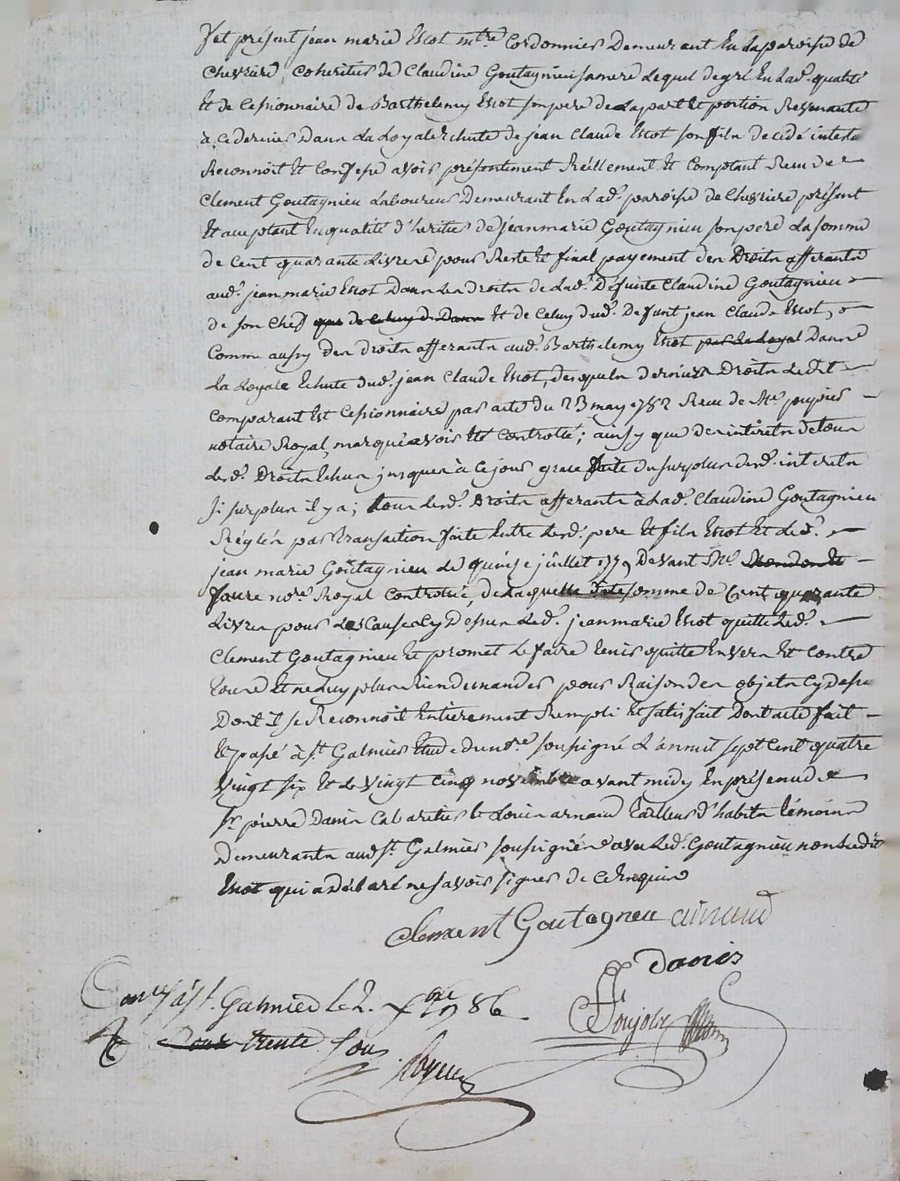 Y est présent jean marie Escot mtre Cordonnier Demeurant En la paroisse de
Chevriere, coheritier de Claudine Goutagnieu sa mere Lequel de gré En lad. qualité
Et de Cessionnaire de Barthelemy Escot son pere de la part Et portion Revenante
à ce dernier Dans La Loyale Echute de jean Claude Escot son fils decedé intesta
Reconnoit Et Confesse avoir présentement Réellement Et Comptant Recu de
Clement Goutagnieu Laboureur Demeurant En Lad. paroisse de Chevriere présent
Et acceptant En qualité d'heritier de jean marie Goutagnieu son pere La somme
de Cent quarante Livres pour Reste Et final payement des Droits afferants
aud. jean marie Escot Dans Les Droits de Lad. Defunte Claudine Goutagnieu
de son Chef que de Celuy de Dans Et de Celuy dud. Defunt jean Claude Escot,
Comme aussy des Droits afferants aud. Barthelemy Escot par La Loyal Dans
La Loyale Echute dud. jean Claude Escot, desquels derniers Droits Ledit
Comparant Est Cessionnaire par acte du 23 may 1782 Recu de Me poujoin
notaire Royal, marqué avoir Eté Controllé; ainsy que des interets de tous
Lesd. Droits Echus jusques à ce jour grace faite du surplus desd. interets
Si surplus il y a; tous Lesd. Droits afferants à Lad. Claudine Goutagnieu
Reglés par transaction faite Entre Lesd. pere Et fils Escot Et Led.
jean marie Goutagnieu Le quinze juillet 1779 Devant Me
faure nore Royal Controllé, de Laquelle somme de Cent quarante
Livres pour Les Causes Cy Dessus Led. jean marie Escot quitte Led.
Clement Goutagnieu Et promet Le faire tenir quitte Envers Et Contre
tous Et ne luy plus Rien demander pour Raison des objets Cy dessus
Dont il se Reconnoit Entierement Rempli Et satisfait Dont acte fait
Et passé à St. Galmier Etude du nore soussigné L'an mil sept Cent quatre
Vingt six Et Le Vingt Cinq novembre avant midy En présence de
Sr. pierre Danis Cabaretier Et Louis arnaud tailleur d'habits témoins
Demeurants aud. St. Galmier soussignés avec Led. Goutagnieu non Ledit
Escot qui a déclaré ne savoir signer de Ce Enquis
Clement Goutagneu arnaud
Danis
Conté à St. Galmier le 2. Xbre 1786
R trente sous
Poujoin